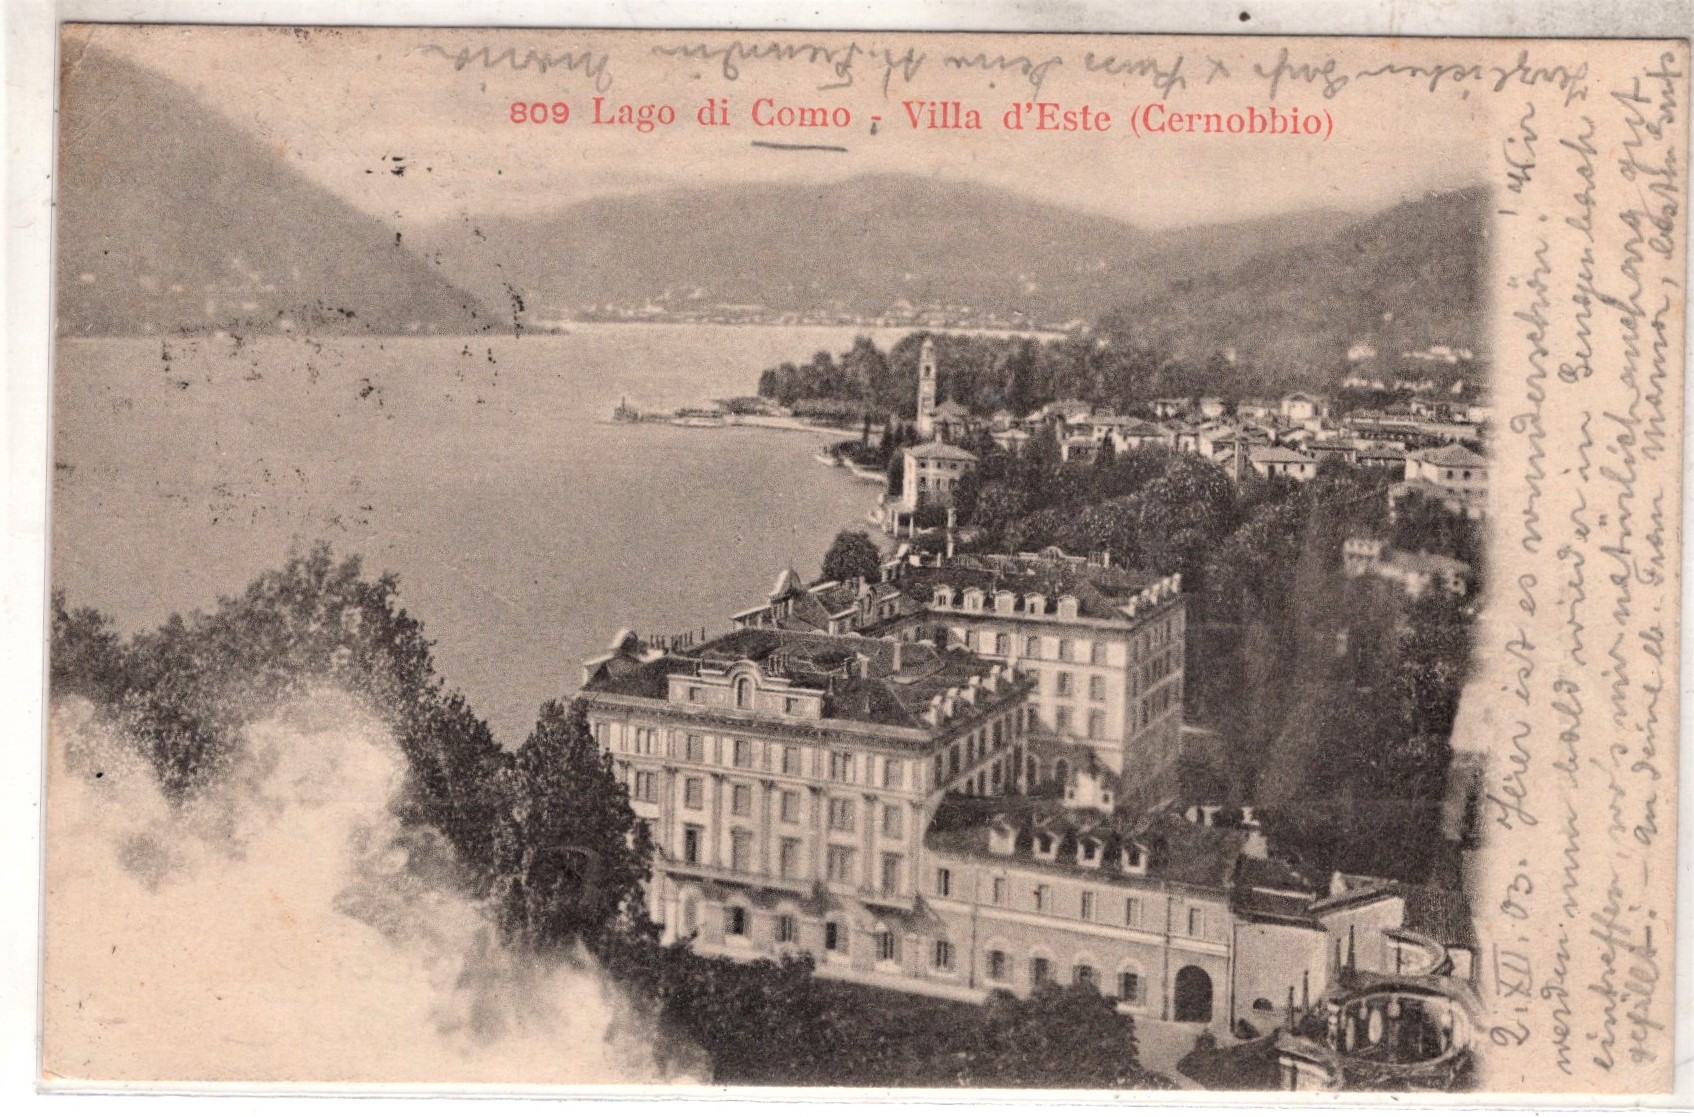 809 Lago di Como - Villa d'Este (Cernobbio)
2. XII. 03. Hier ist es wunderschön! Wir
werden nun bald wieder in Gengenbach
eintreffen, wo's mir natürlich auch arg gut
gefällt. — an deine lb. Frau Mama,
Herzlichen Gruß & Kuss deine